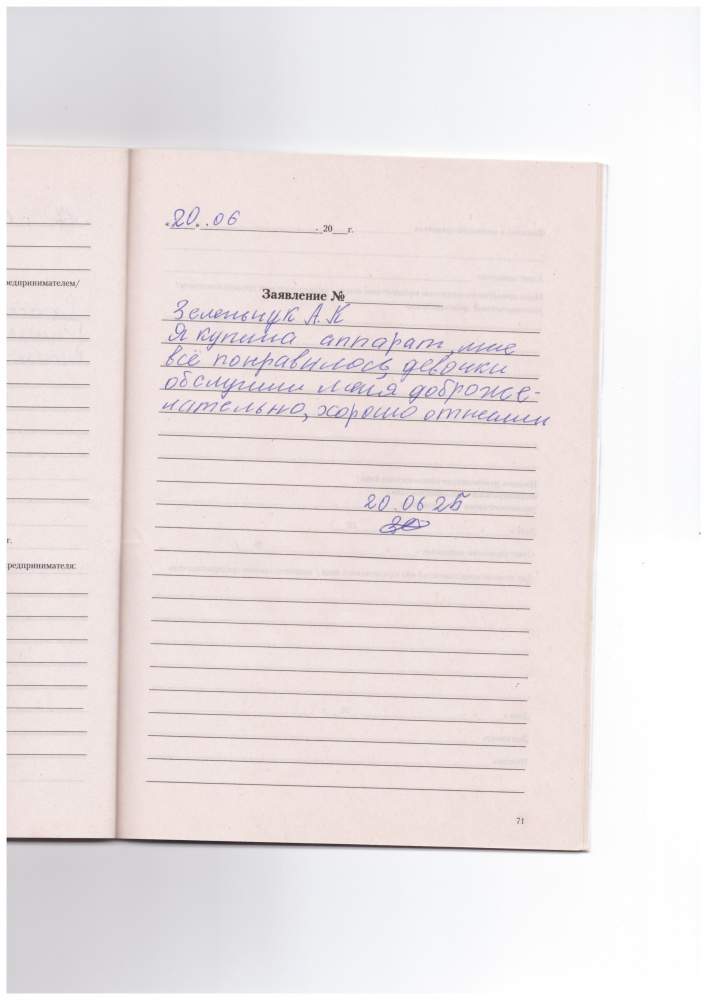 «20» . 06 . 20 г.
редпринимателем/
Заявление №
Зеленчук А.К
Я купила аппарат, мне
всё понравилось, девочки
обслужили меня доброже-
лательно, хорошо
20.06 25
г.
редпринимателя:
71